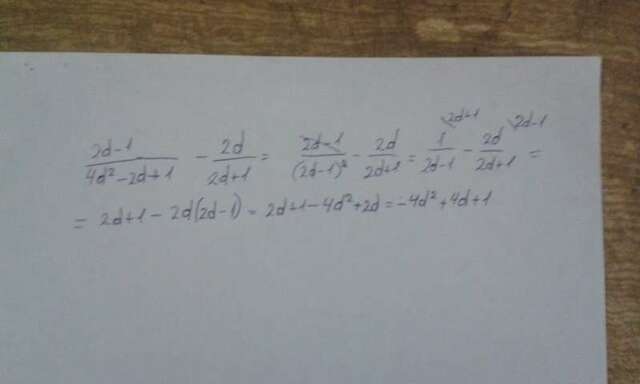 \frac{2d-1}{4d^2-2d+1} - \frac{2d}{2d+1} = \frac{2d-1}{(2d-1)^2} - \frac{2d}{2d+1} = \frac{1}{2d-1}^{\backslash 2d+1} - \frac{2d}{2d+1}^{\backslash 2d-1} =
= 2d+1 - 2d(2d-1) = 2d+1-4d^2+2d = -4d^2+4d+1